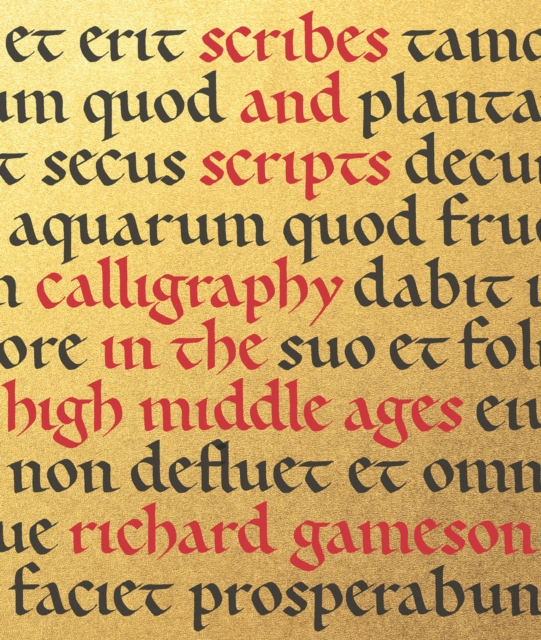 et erit scribes tamq
um quod and planta
t secus scripts decur
aquarum quod fruc
n calligraphy dabit i
ore in the suo et foli
high middle ages eiu
non defluet et omn
ue richard gameson
faciet prosperabun